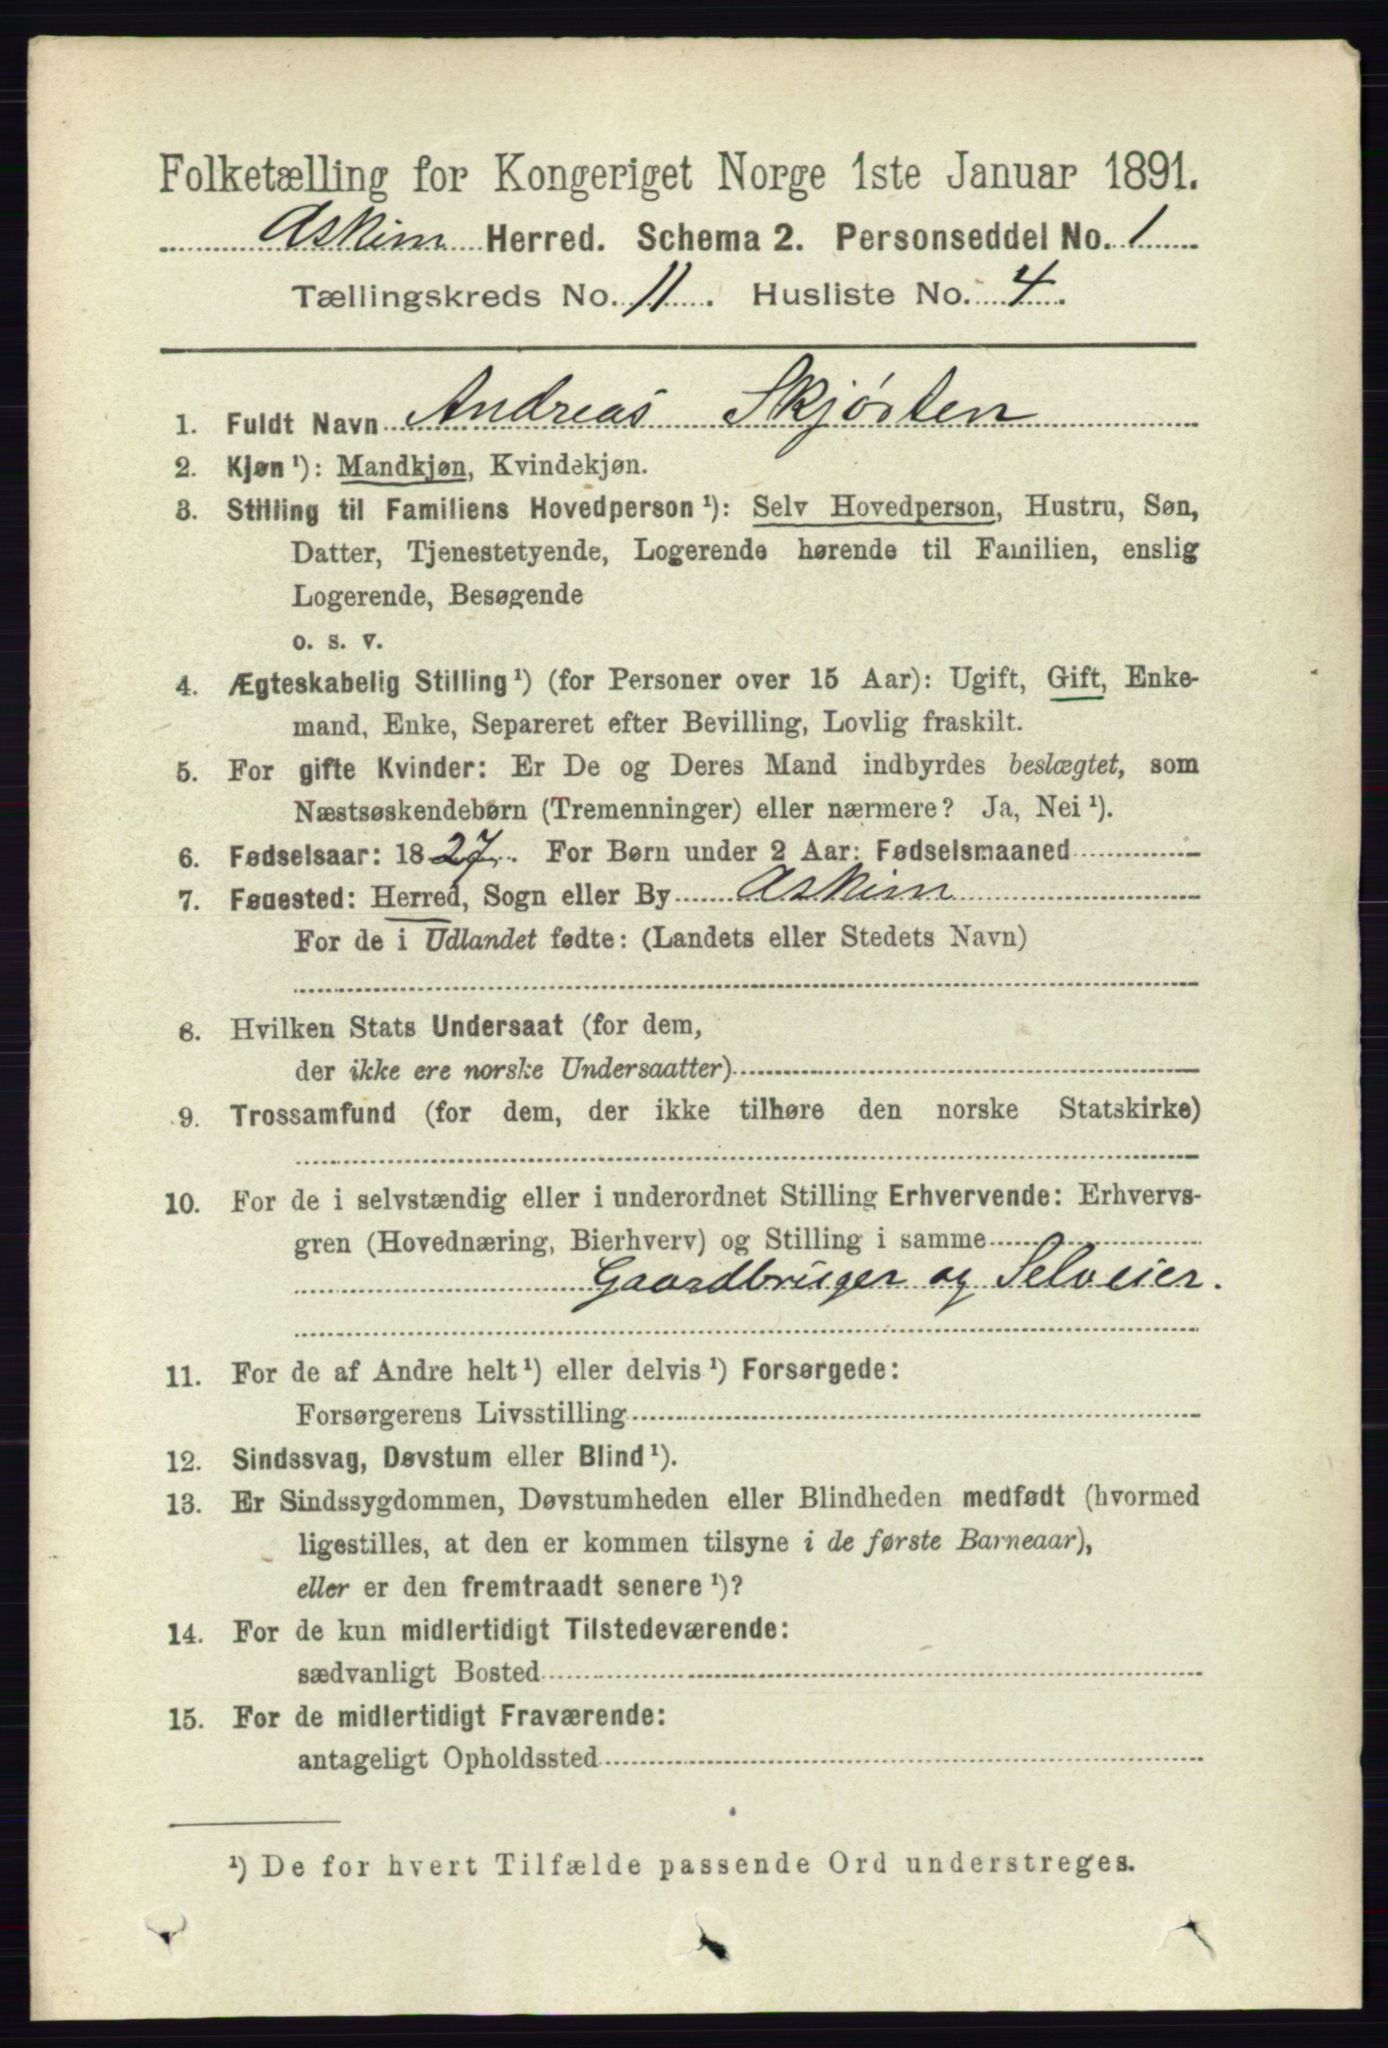 Folketælling for Kongeriget Norge 1ste Januar 1891.
Askim Herred. Schema 2. Personseddel No. 1
Tællingskreds No. 11. Husliste No. 4.
1. Fuldt Navn Andreas Skjørten
2. Kjøn¹): Mandkjøn, Kvindekjøn.
3. Stilling til Familiens Hovedperson¹): Selv Hovedperson, Hustru, Søn,
Datter, Tjenestetyende, Logerende hørende til Familien, enslig
Logerende, Besøgende
o. s. v.
4. Ægteskabelig Stilling¹) (for Personer over 15 Aar): Ugift, Gift, Enke-
mand, Enke, Separeret efter Bevilling, Lovlig fraskilt.
5. For gifte Kvinder: Er De og Deres Mand indbyrdes beslægtet, som
Næstsøskendebørn (Tremenninger) eller nærmere? Ja, Nei¹).
6. Fødselsaar: 1827. For Børn under 2 Aar: Fødselsmaaned
7. Føuested: Herred, Sogn eller By Askim
For de i Udlandet fødte: (Landets eller Stedets Navn)
8. Hvilken Stats Undersaat (for dem,
der ikke ere norske Undersaatter)
9. Trossamfund (for dem, der ikke tilhøre den norske Statskirke)
10. For de i selvstændig eller i underordnet Stilling Erhvervende: Erhvervs-
gren (Hovednæring, Bierhverv) og Stilling i samme
Gaardbruger og Selveier.
11. For de af Andre helt¹) eller delvis¹) Forsørgede:
Forsørgerens Livsstilling
12. Sindssvag, Døvstum eller Blind¹).
13. Er Sindssygdommen, Døvstumheden eller Blindheden medfødt (hvormed
ligestilles, at den er kommen tilsyne i de første Barneaar),
eller er den fremtraadt senere¹)?
14. For de kun midlertidigt Tilstedeværende:
sædvanligt Bosted
15. For de midlertidigt Fraværende:
antageligt Opholdssted
¹) De for hvert Tilfælde passende Ord understreges.